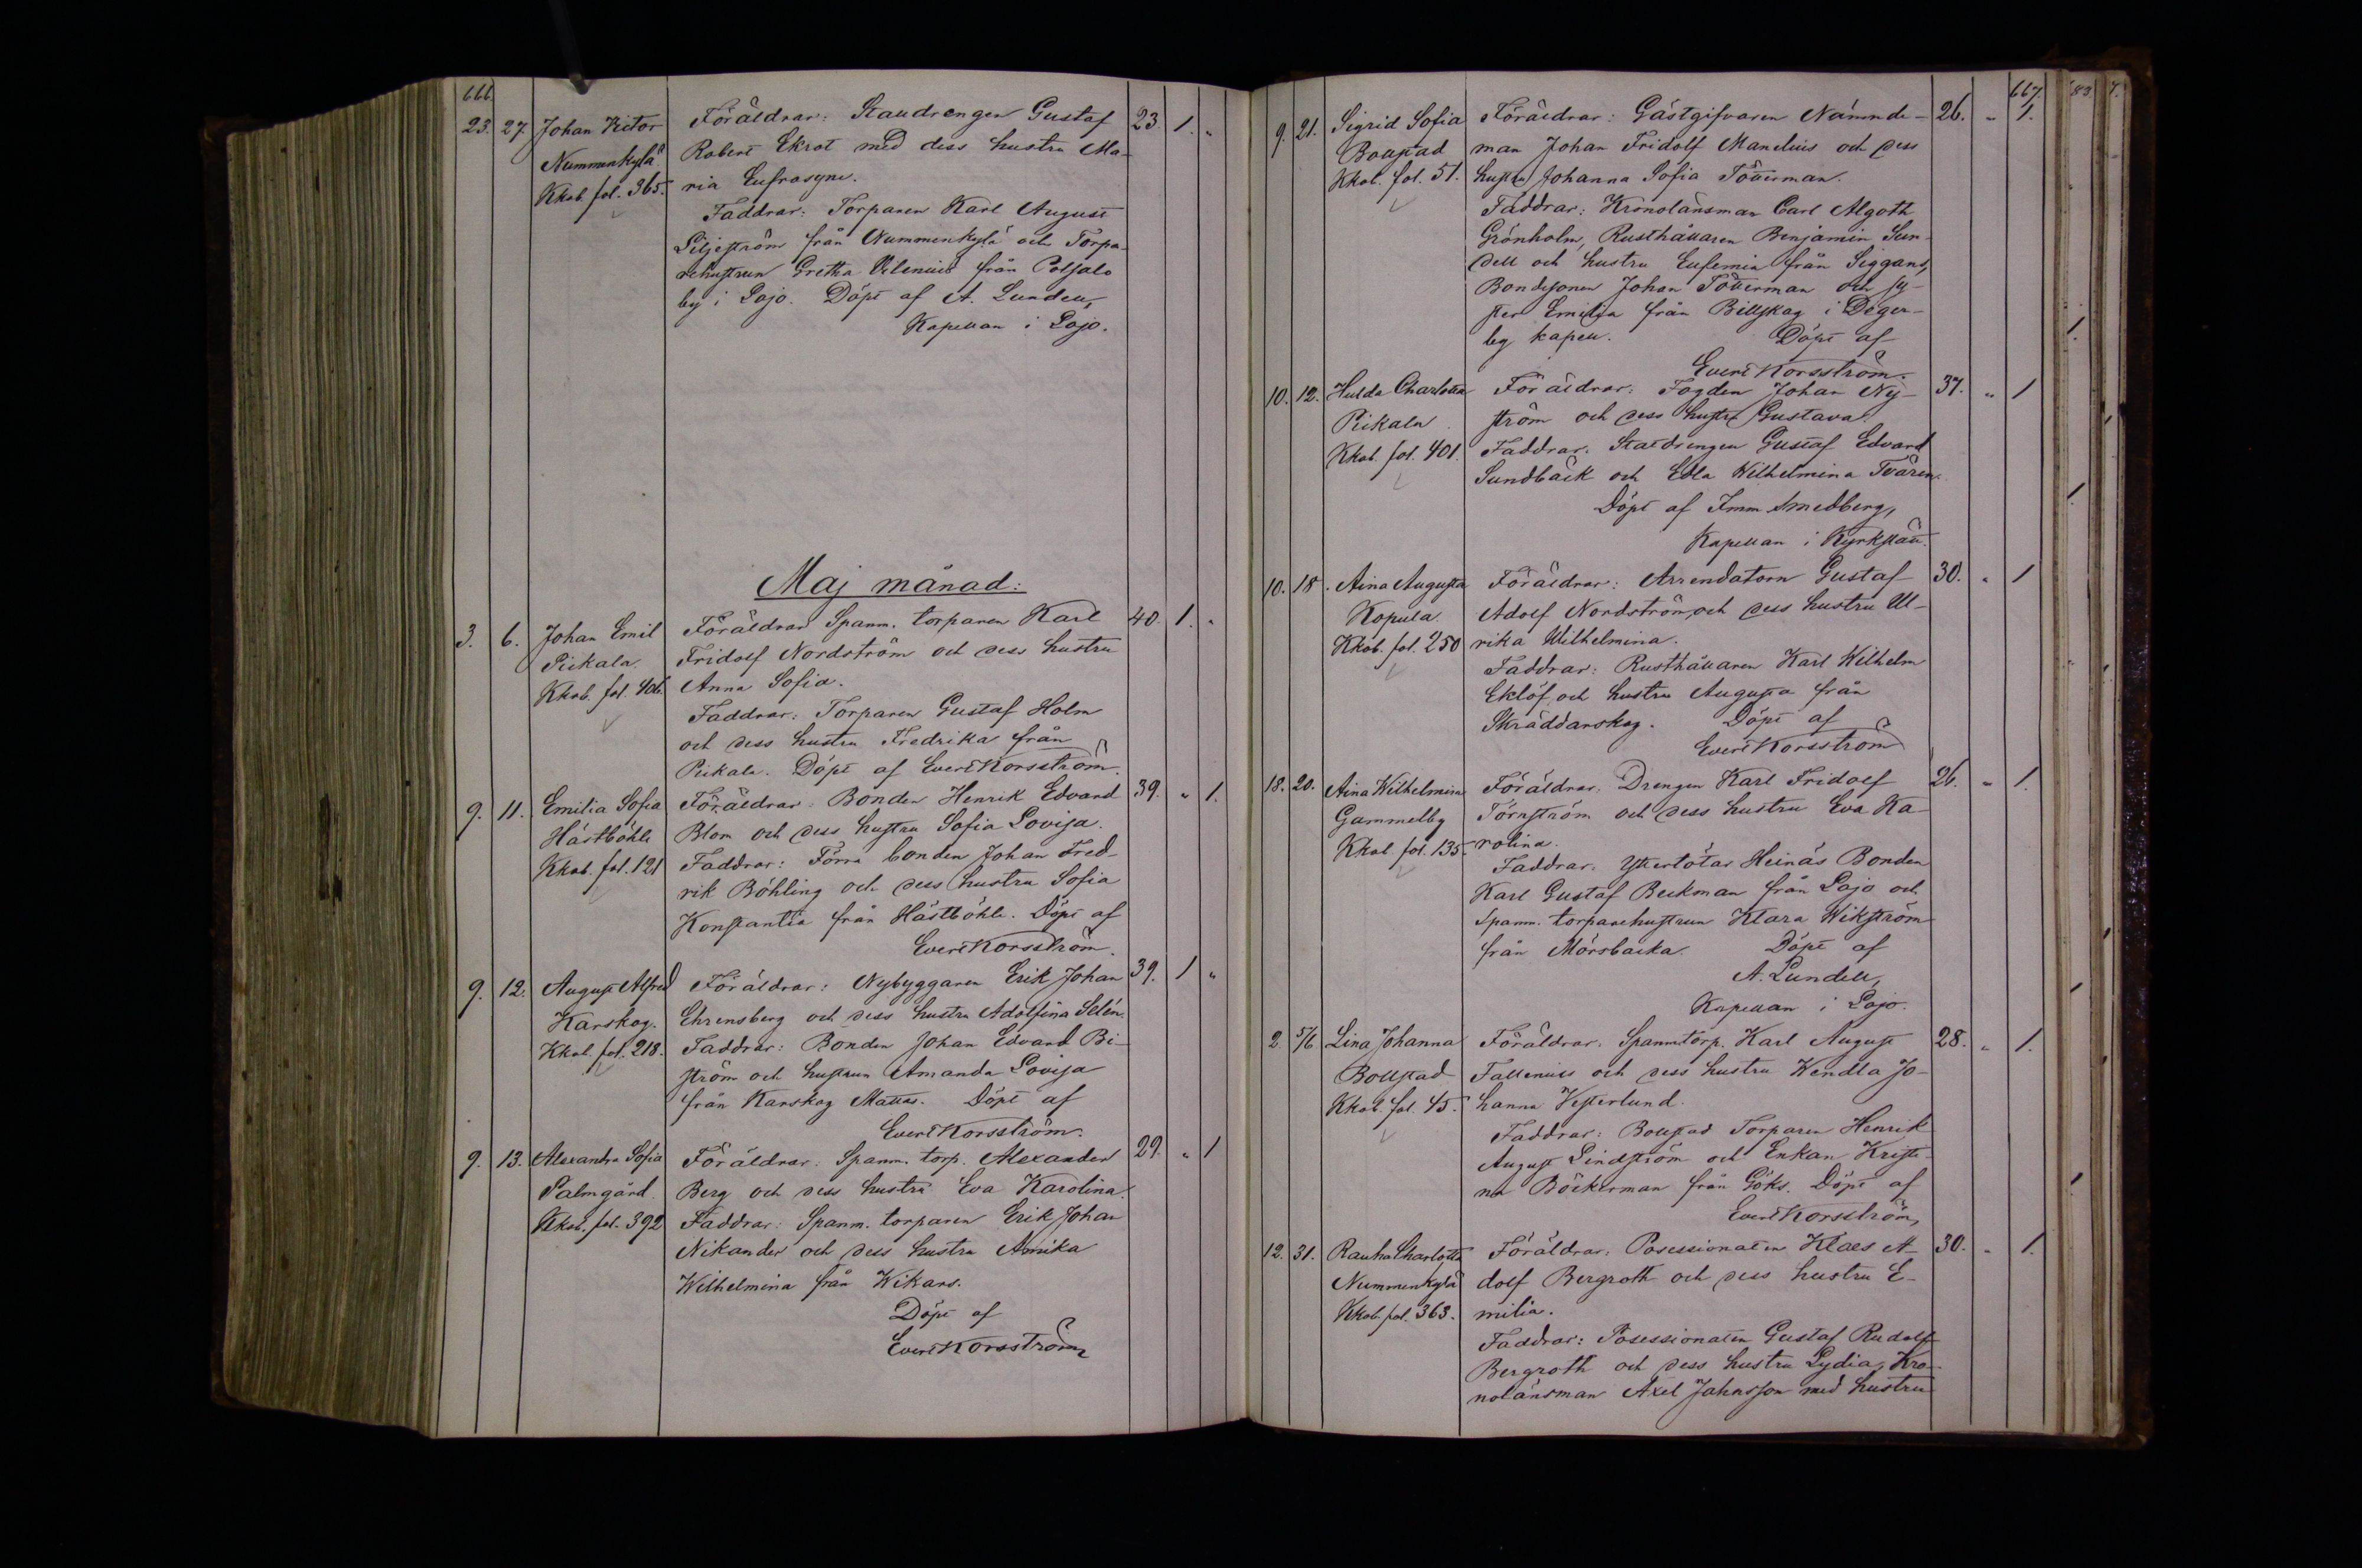 666.
23. 27. Johan Victor Föräldrar: Staudrengen Gustaf 23. 1. "
Nummenkylä Robert Ekrot med dess hustru Ma-
Kkob. fol. 365. ria Eufrosyne.
Faddrar: Torparen Karl August
Liljeström från Nummenkylä och Torpa-
rehustrun Gretha Vilenius från
by i Lojo. Döpt af A. Lundell,
Kapellan i Lojo.
Maj månad:
3. 6. Johan Emil Föräldrar Spanm. torparen Karl 40. 1. "
Pickala. Fridolf Nordström och dess hustru
Kkob. fol. 406. Anna Sofia.
Faddrar: Torparen Gustaf Holm
och dess hustru Fredrika från
Pickala. Döpt af Evert Korsström.
9. 11. Emilia Sofia Föräldrar: Bonden Henrik Edvard 39. " 1.
Hästböhle Blom och dess hustru Sofia Lovisa.
Kkob. fol. 121 Faddrar: Förra bonden Johan Fred-
rik Böhling och dess hustru Sofia
Konstantia från Hästböhle. Döpt af
Evert Korsström.
9. 12. August Alfred Föräldrar: Nybyggaren Erik Johan 39. 1 "
Karskog. Ehrensberg och dess hustru Adolfina Selén.
Kkob. fol. 218. Faddrar: Bonden Johan Edvard Bi-
ström och hustrun Amanda Lovisa
från Karskog Mattas. Döpt af
Evert Korsström.
9. 13. Alexandra Sofia Föräldrar: Spanm. torp. Alexander 29. " 1
Palmgård. Berg och dess hustru Eva Karolina.
Kkob. fol. 392 Faddrar: Spanm. torparen Erik Johan
Nikander och dess hustru Amika
Wilhelmina från Wikars.
Döpt af
Evert Korsström
667.
9. 21. Sigrid Sofia Föräldrar: Gästgifvaren Nämnde- 26. " 1.
Bollstad man Johan Fridolf Manelius och dess
Kkob. fol. 51. hustru Johanna Sofia Tötterman.
Faddrar: Kronolänsman Carl Algoth
Grönholm, Rusthållaren Benjamin Sun-
dell och hustru Eufemia från Siggans,
Bondesonen Johan Tötterman och sy-
ster Emilia från Billskog i Deger-
by kapell. Döpt af
Evert Korsström.
10. 12. Hulda Charlotta Föräldrar: Fogden Johan Ny- 37. " 1
Pickala ström och dess hustru Gustava.
Kkob. fol. 401. Faddrar: Statdrengen Gustaf Edvard
Sundbäck och Edla Wilhelmina
Döpt af Imm. Smedberg,
Kapellan i Kyrkslätt.
10. 18. Aina Augusta Föräldrar: Arrendatorn Gustaf 30. " 1
Kopula. Adolf Nordström och dess hustru Ul-
Kkob. fol. 250 rika Wilhelmina.
Faddrar: Rusthållaren Karl Wilhelm
Eklöf och hustru Augusta från
Skräddarskog. Döpt af
Evert Korsström
18. 20. Aina Wilhelmina Föräldrar: Drengen Karl Fridolf 26. " 1.
Gammelby Törnström och dess hustru Eva Ka-
Kkob. fol. 135. rolina.
Faddrar: Heinäs Bonden
Karl Gustaf Beckman från Lojo och
Spanm. torparehustrun Klara Wikström
från Mörsbacka. Döpt af
A. Lundell,
Kapellan i Lojo.
2. 5/6 Lina Johanna Föräldrar: Spanmtorp. Karl August 28. " 1.
Bollstad Tallenius och dess hustru Wendla Jo-
Kkob. fol. 45. hanna Vesterlund.
Faddrar: Bollstad Torparen Henrik
August Lindström och Enkan Kristi-
na Böckerman från Göks. Döpt af
Evert Korsström,
12. 31. Rauha Charlotta Föräldrar: Posessionaten Klaes A- 30. " 1.
Nummenkylä dolf Bergroth och dess hustru E-
Kkob. fol. 363. milia.
Faddrar: Posessionaten Gustaf Rudolf
Bergroth och dess hustru Lydia, Kro-
nolänsman Axel Johnsson med hustru